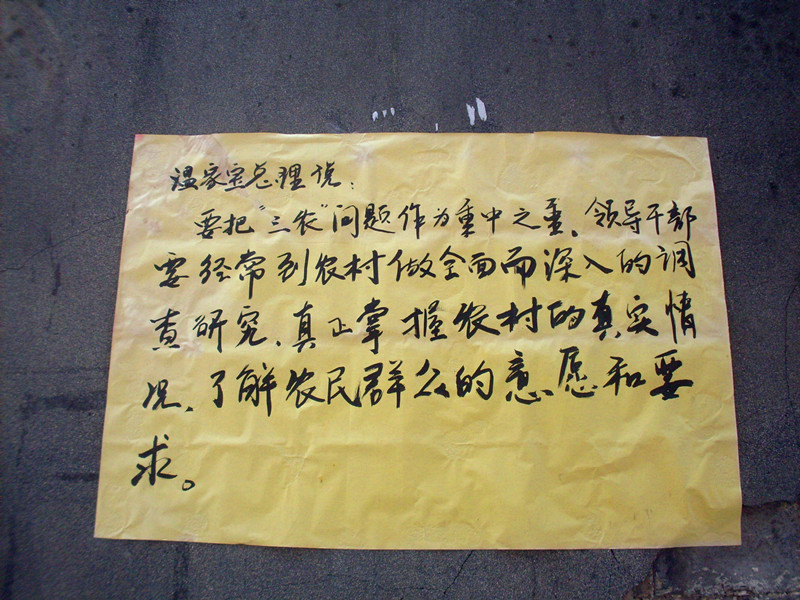 温家宝总理说：
要把“三农”问题作为重中之重、领导干部
要经常到农村做全面而深入的调
查研究、真正掌握农村的真实情
况、了解农民群众的意愿和要
求。